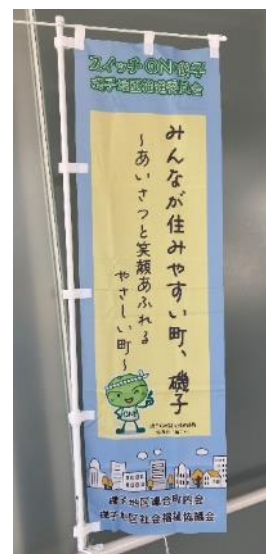 スイッチON磯子
磯子地区推進委員会
みんなが住みやすい町、磯子
～あいさつと笑顔あふれる
やさしい町～
ONE
磯子地区連合町内会
磯子地区社会福祉協議会